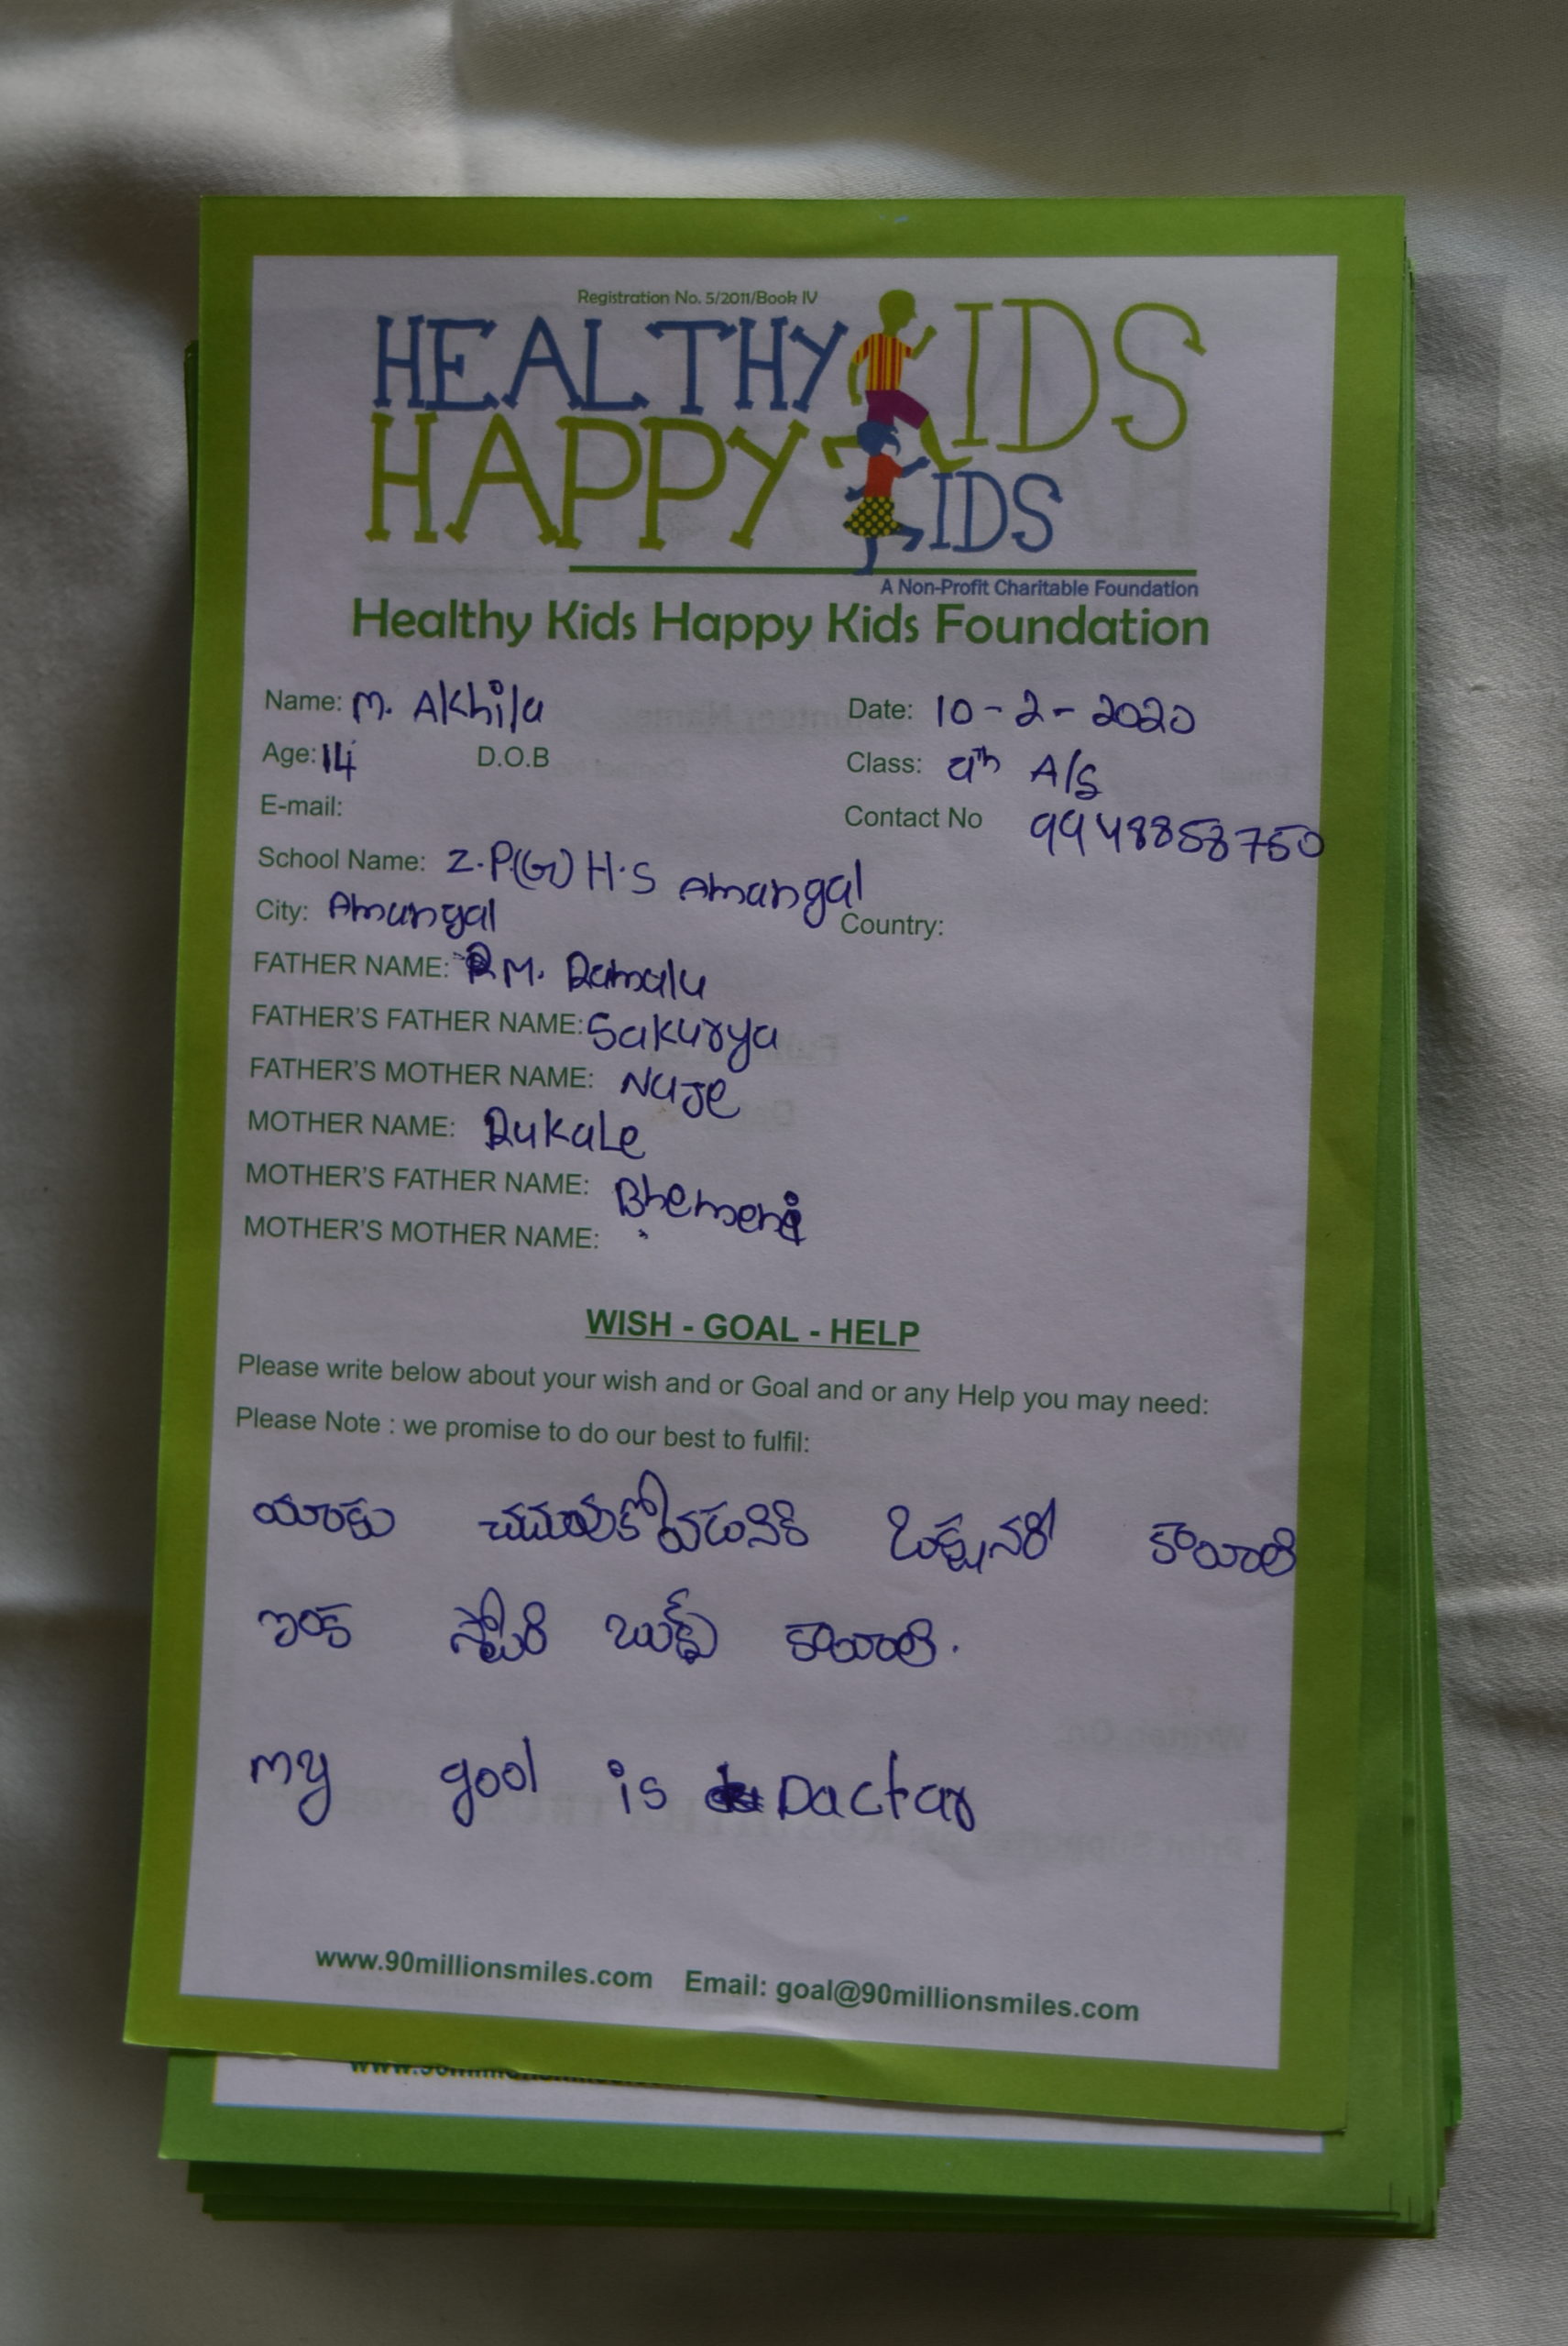 Registration No. 5/2011/Book IV
HEALTHY KIDS
HAPPY KIDS
A Non-Profit Charitable Foundation
Healthy Kids Happy Kids Foundation
Name: M. Akhila Date: 10-2-2020
Age: 14 D.O.B Class: 9th A/S
E-mail: Contact No 9948858750
School Name: Z.P.(G) H.S Amangal
City: Amangal Country:
FATHER NAME: M. Ramalu
FATHER'S FATHER NAME: Sakurya
FATHER'S MOTHER NAME: NaJe
MOTHER NAME: RukaLe
MOTHER'S FATHER NAME:
MOTHER'S MOTHER NAME:
WISH - GOAL - HELP
Please write below about your wish and or Goal and or any Help you may need:
Please Note : we promise to do our best to fulfil:
కావాలి
ఇంక స్టోరి బుక్ కావాలి.
my gool is Dactar
www.90millionsmiles.com Email: goal@90millionsmiles.com